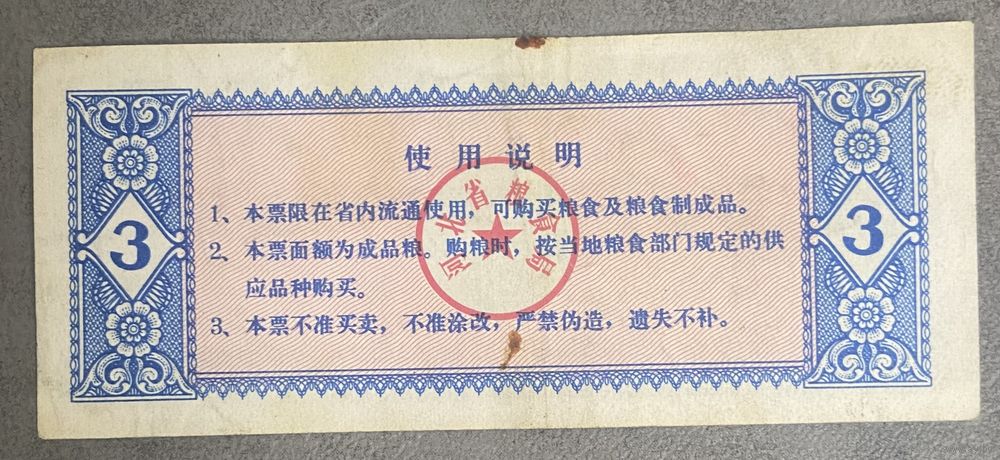 使用说明
1、本票限在省内流通使用，可购买粮食及粮食制成品。
2、本票面额为成品粮。购粮时，按当地粮食部门规定的供
应品种购买。
3、本票不准买卖，不准涂改，严禁伪造，遗失不补。
河北省粮食局
3
3